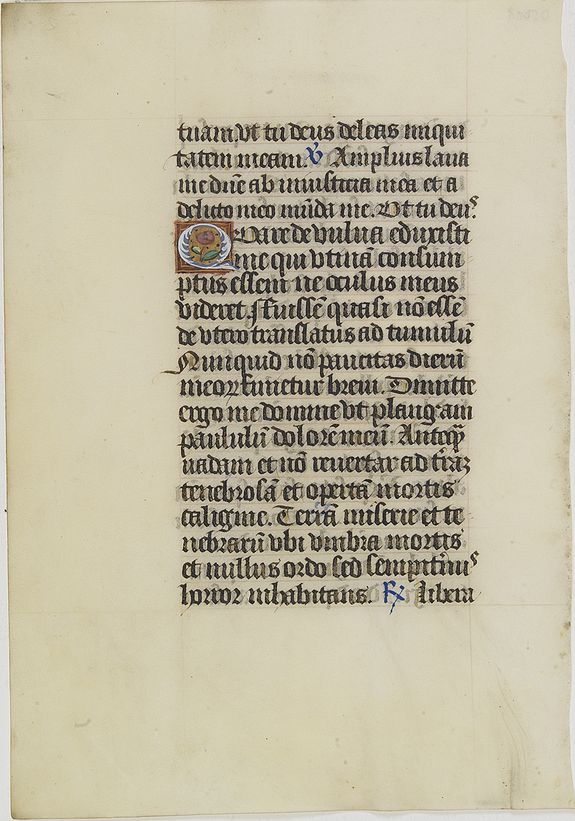 tuam vt tu deus deleas iniqui
tatem meam. V Amplius laua
me dñe ab iniusticia mea et a
delicto meo mũda me. Vt tu deuˢ.
Quare de vulua eduxisti
me qui vtinã consum
ptus essem ne oculus meus
videret. Fuissẽ quasi nõ essẽ
de vtero translatus ad tumulũ
Nunquid nõ paucitas dierũ
meoꝝ finietur breui. Dimitte
ergo me domine vt plangam
paululũ dolorẽ meũ. Anteq̃
uadam et nõ reuertar ad t̃raz
tenebrosã et opertã mortis
caligine. Terrã miserie et te
nebrarũ vbi vmbra mortis
et nullus ordo sed sempit̃nuˢ
horror inhabitans. R Libera